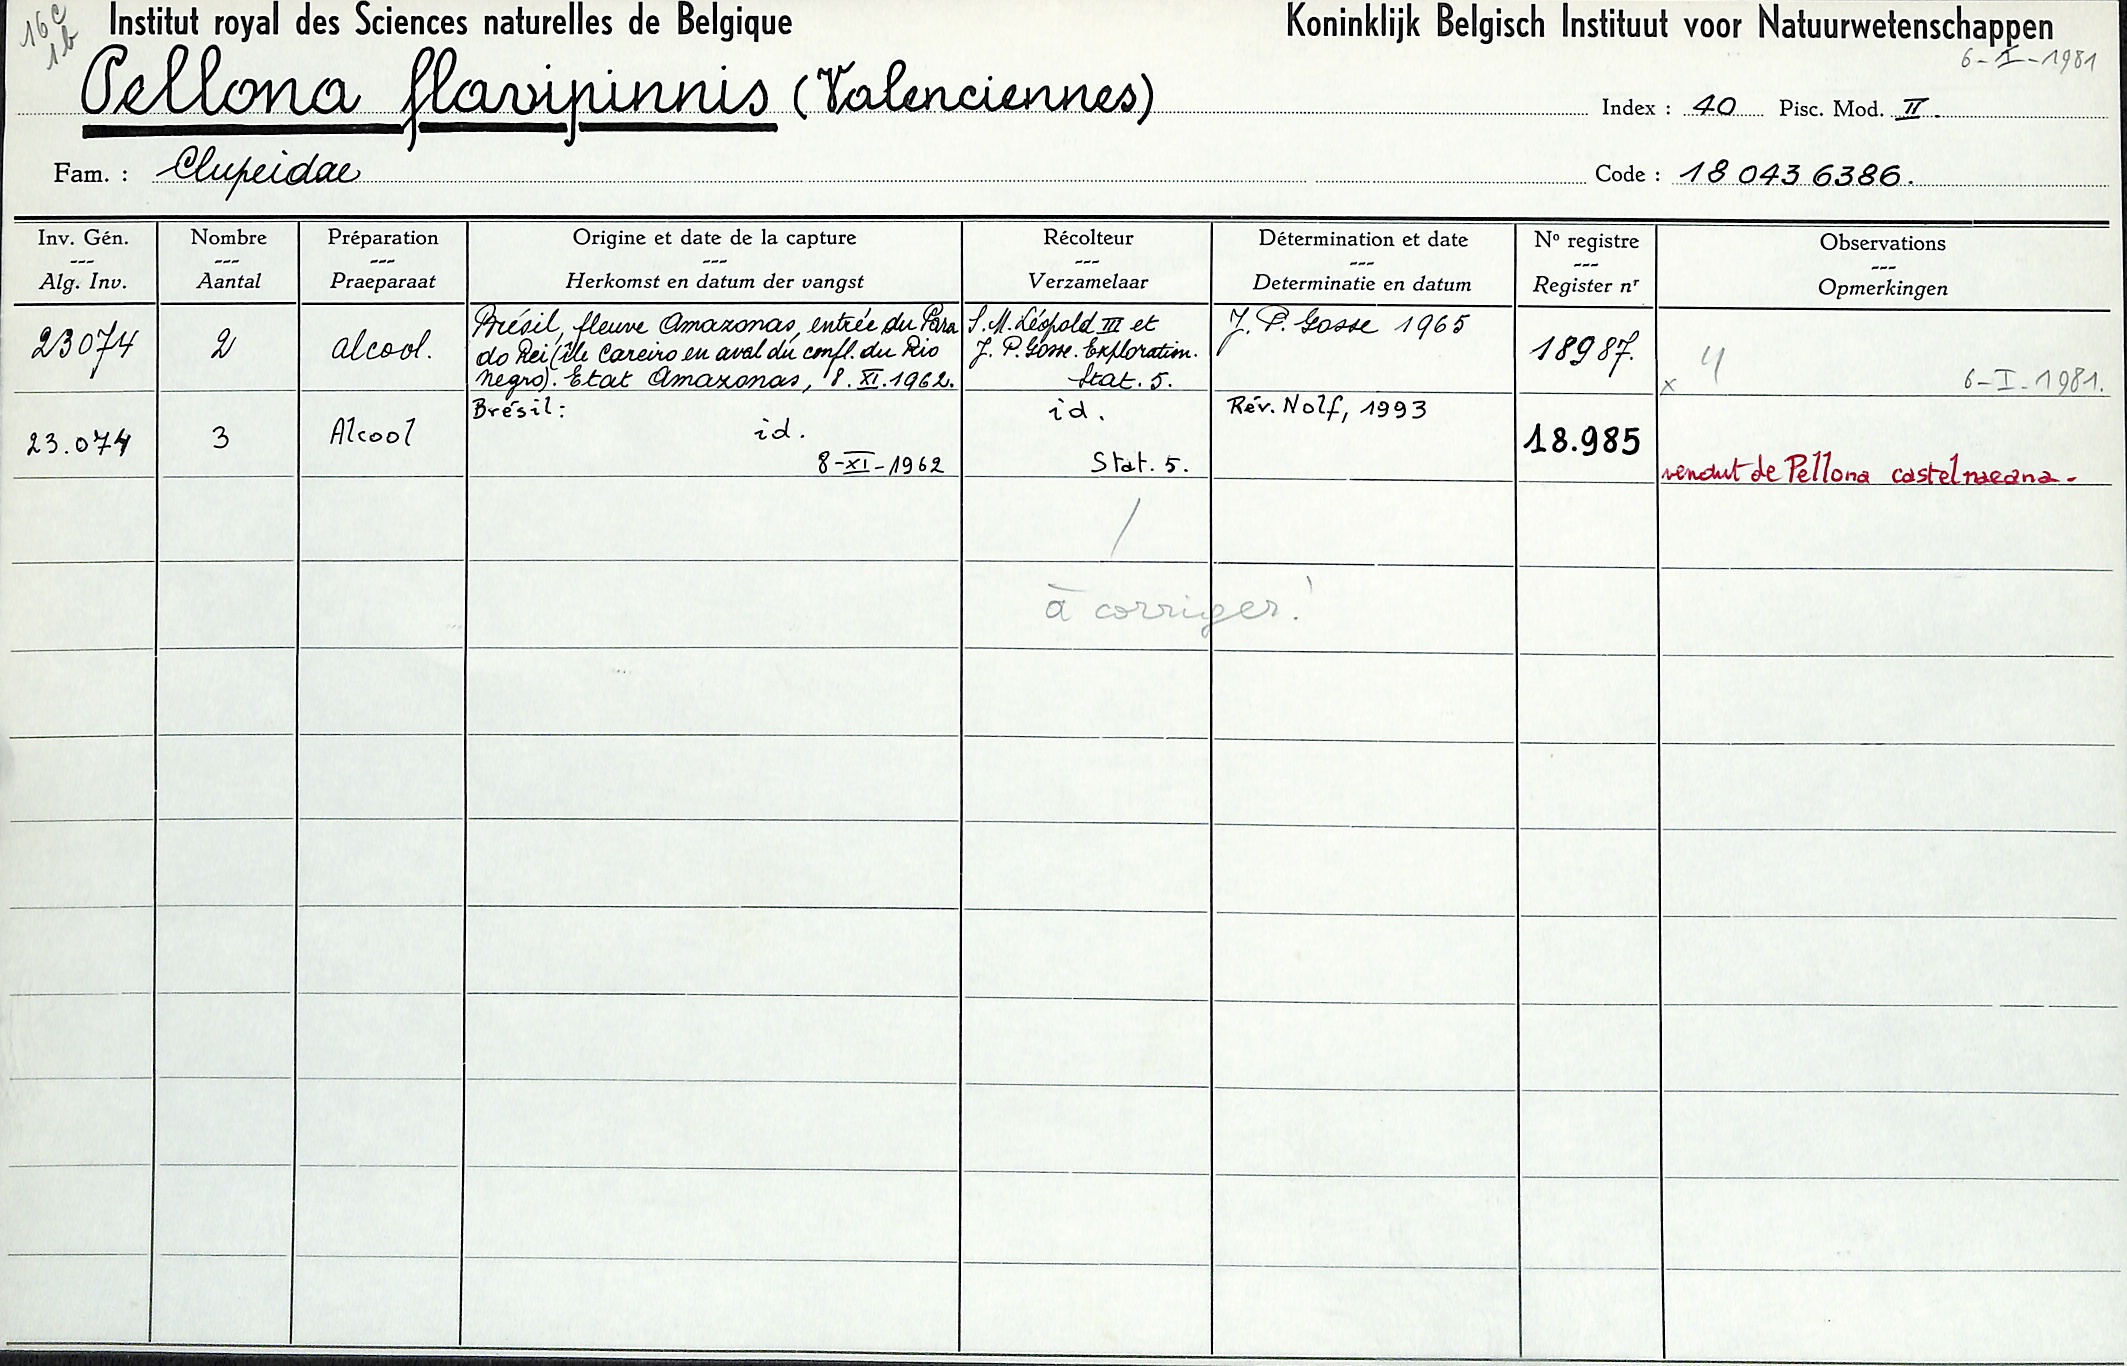 16c
1b
Institut royal des Sciences naturelles de Belgique
Koninklijk Belgisch Instituut voor Natuurwetenschappen
6-I-1981
Pellona flavipinnis (Valenciennes)
Index : 40 Pisc. Mod. II.
Fam. : Clupeidae
Code : 18 043 6386.
Inv. Gén. Nombre Préparation Origine et date de la capture Récolteur Détermination et date Nº registre Observations
--- --- --- --- --- --- --- ---
Alg. Inv. Aantal Praeparaat Herkomst en datum der vangst Verzamelaar Determinatie en datum Register nr Opmerkingen
23074 2 alcool.
Brésil, fleuve Amazonas, entrée du Para
do Rei (île Careiro en aval du confl. du Rio
negro). Etat Amazonas, 8.XI.1962.
S.M. Léopold III et
J. P. Gosse. Exploration.
Stat. 5.
J. P. Gosse 1965
18987.
x 6-I-1981.
23.074 3 Alcool
Brésil:
id.
8-XI-1962
id.
Stat. 5.
Rév. Nolf, 1993
18.985
de Pellona castelnaeana.
/
à corriger!